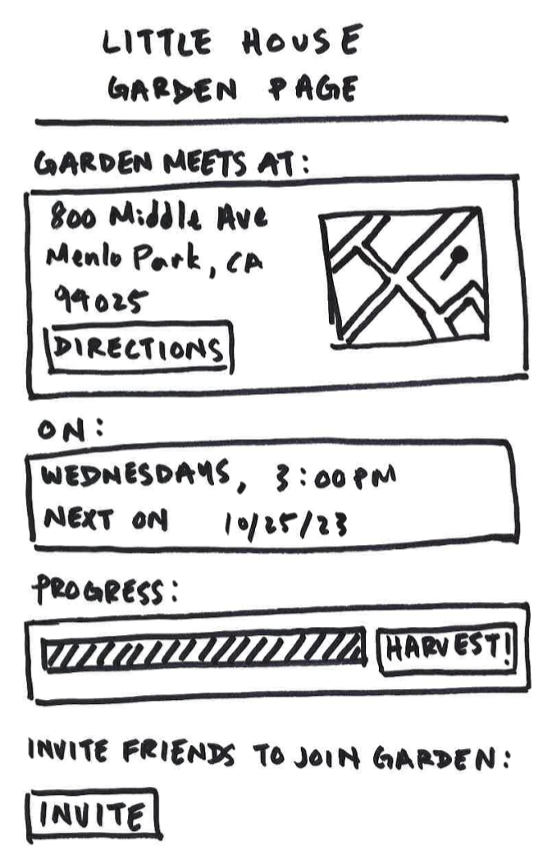 LITTLE HOUSE
GARDEN PAGE
GARDEN MEETS AT:
800 Middle Ave
Menlo Park, CA
94025
DIRECTIONS
ON:
WEDNESDAYS, 3:00PM
NEXT ON 10/25/23
PROGRESS:
HARVEST!
INVITE FRIENDS TO JOIN GARDEN:
INVITE